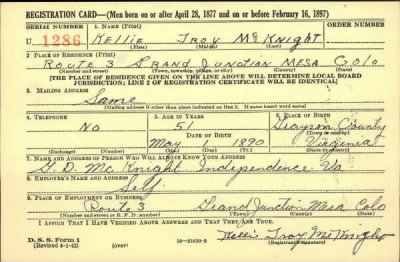 REGISTRATION CARD—(Men born on or after April 28, 1877 and on or before February 16, 1897)
SERIAL NUMBER 1. NAME (Print)
U 1286 Kellie Troy McKnight
(First) (Middle) (Last)
2. PLACE OF RESIDENCE (Print)
Route 3 Grand Junction Mesa Colo
(Number and street) (Town, township, village, or city) (County) (State)
[THE PLACE OF RESIDENCE GIVEN ON THE LINE ABOVE WILL DETERMINE LOCAL BOARD
JURISDICTION; LINE 2 OF REGISTRATION CERTIFICATE WILL BE IDENTICAL]
3. MAILING ADDRESS
Same
[Mailing address if other than place indicated on line 2. If same insert word same]
4. TELEPHONE 5. AGE IN YEARS 6. PLACE OF BIRTH
No 51 Grayson County
DATE OF BIRTH (Town or county)
May 1 1890 Virginia
(Exchange) (Number) (Mo.) (Day) (Yr.) (State or country)
7. NAME AND ADDRESS OF PERSON WHO WILL ALWAYS KNOW YOUR ADDRESS
G. D. McKnight Independence Va
8. EMPLOYER'S NAME AND ADDRESS
Self
9. PLACE OF EMPLOYMENT OR BUSINESS
Route 3 Grand Junction Mesa Colo
(Number and street or R. F. D. number) (Town) (County) (State)
I AFFIRM THAT I HAVE VERIFIED ABOVE ANSWERS AND THAT THEY ARE TRUE.
D. S. S. Form 1
(Revised 4-1-42) (over) 16-21630-2 Kellie Troy McKnight
(Registrant's signature)